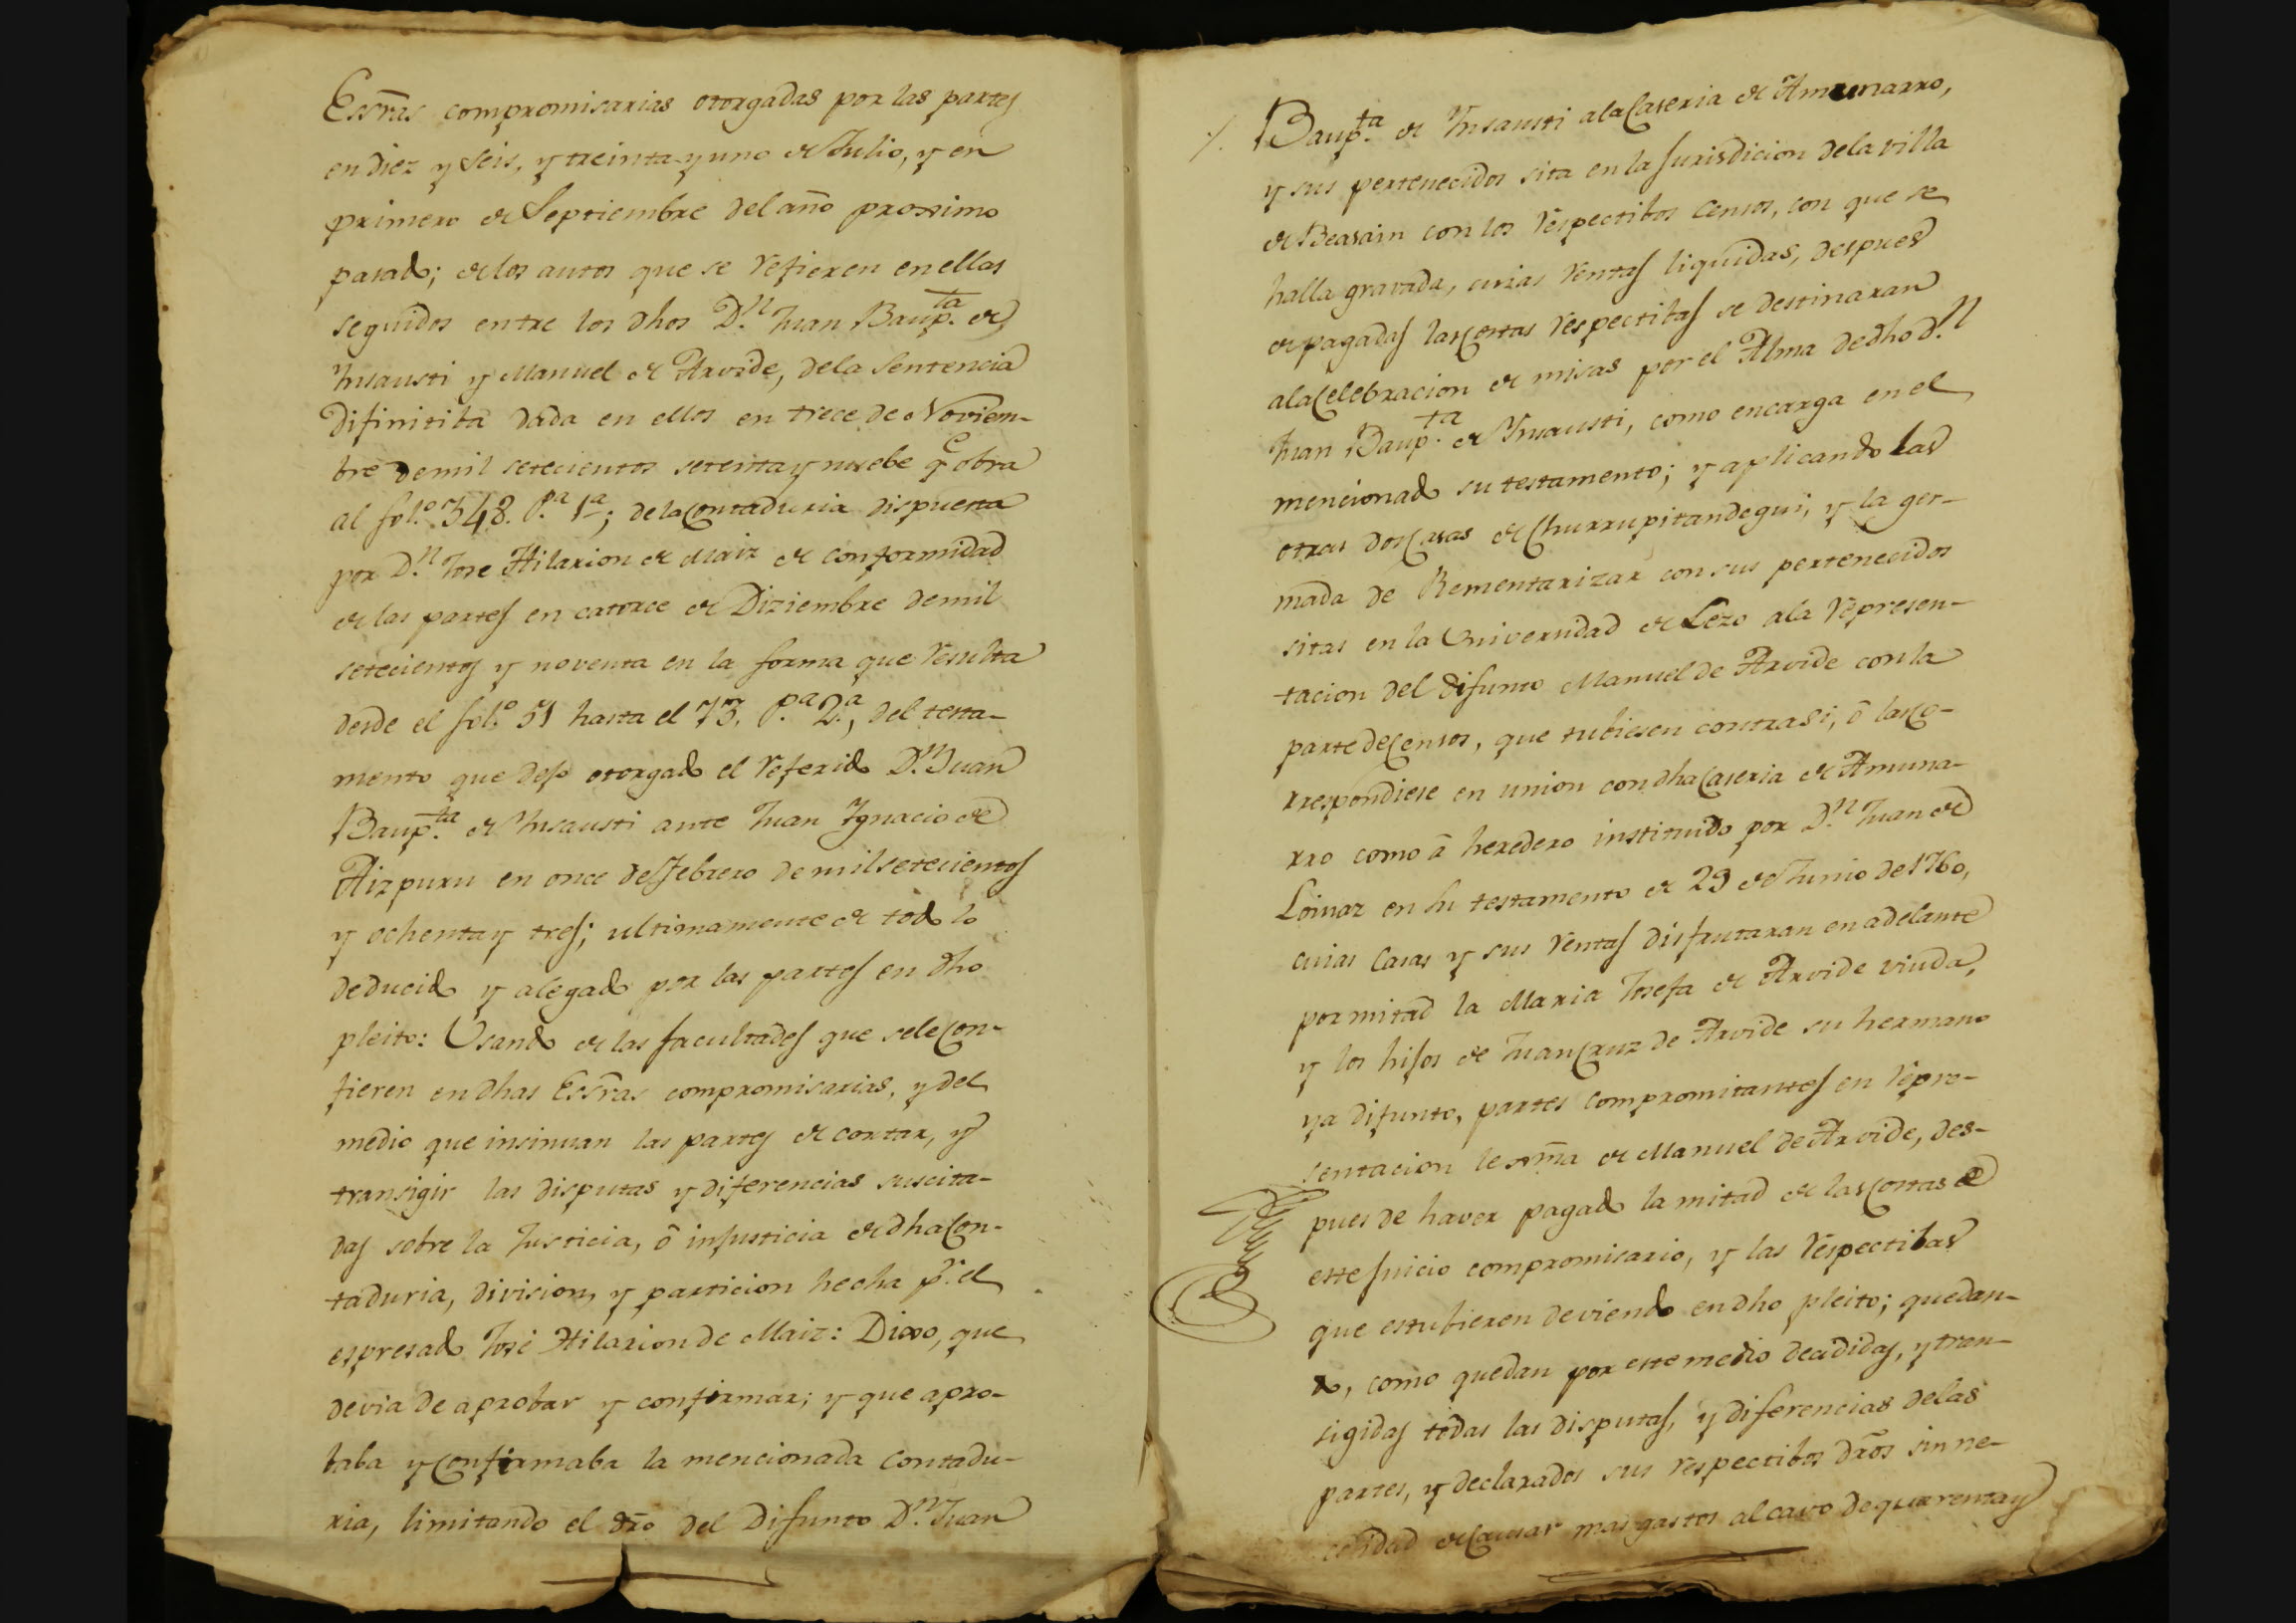 Essras compromisarias otorgadas por las partes
en diez y seis, y treinta y uno de Julio, y en
primero de Septiembre del año proximo
pasado; de los autos que se refieren en ellas
seguidos entre los dhos D.n Juan Baup.ta de
Insausti y Manuel de Arvide, de la Sentencia
difinitiba dada en ellos en trece de Noviem-
bre de mil setecientos setenta y nuebe q.e obra
al fol.o 548. P.a 1.a; de la Contaduria dispuesta
por D.n Jose Hilarion de Maiz de conformidad
de las partes en catorce de Diziembre de mil
setecientos y noventa en la forma que resulta
desde el fol.o 51 hasta el 73. P.a 2.a, del testa-
mento que dejo otorgado el referido D.n Juan
Baup.ta de Insausti ante Juan Ygnacio de
Aizpuru en once de Febrero de mil setecientos
y ochenta y tres; ultimamente de todo lo
deducido y alegado por las partes en dho
pleito: Usando de las facultades que se le con-
fieren en dhas Essras compromisarias, y del
medio que insinuan las partes de cortar, y
transigir las disputas y diferencias suscita-
das sobre la Justicia, ô injusticia de dha Con-
taduria, division, y particion hecha p.r el
espresado José Hilarion de Maiz: Dixo, que
devia de aprobar y confirmar; y que apro-
baba y confirmaba la mencionada Contadu-
ria, limitando el dro del Difunto D.n Juan
/. Baup.ta de Insausti a la Caseria de Amunarro,
y sus pertenecidos sita en la Jurisdicion de la villa
de Beasain con los respectibos censos, con que se
halla gravada, cuias rentas liquidas, despues
de pagadas las costas respectibas se destinaran
a la celebracion de misas por el Alma de dho d.n
Juan Baup.ta de Insausti, como encarga en el
mencionado su testamento; y aplicando las
otras dos Casas de Churrupitandegui, y la ger-
mada de Rementarizar con sus pertenecidos
sitas en la Universidad de Lezo a la represen-
tacion del difunto Manuel de Arvide con la
parte de Censos, que tubiesen contra si, ô las co-
rrespondiese en union con dha Caseria de Amuna-
rro como â heredero instituido por D.n Juan de
Loinaz en su testamento de 29 de Junio de 1760,
cuias Casas y sus rentas disfrutaran en adelante
por mitad la Maria Josefa de Arvide viuda,
y los hijos de Juan Cruz de Arvide su hermano
ya difunto, partes compromitantes en repre-
sentacion lexma de Manuel de Arvide, des-
pues de haver pagado la mitad de las costas de
este Juicio compromisario, y las respectibas
que estubieren deviendo en dho pleito; quedan-
do, como quedan por este medio decididas, y tran-
sigidas todas las disputas, y diferencias de las
partes, y declarados sus respectibos dros sin ne-
cesidad de causar mas gastos al cavo de quarenta y